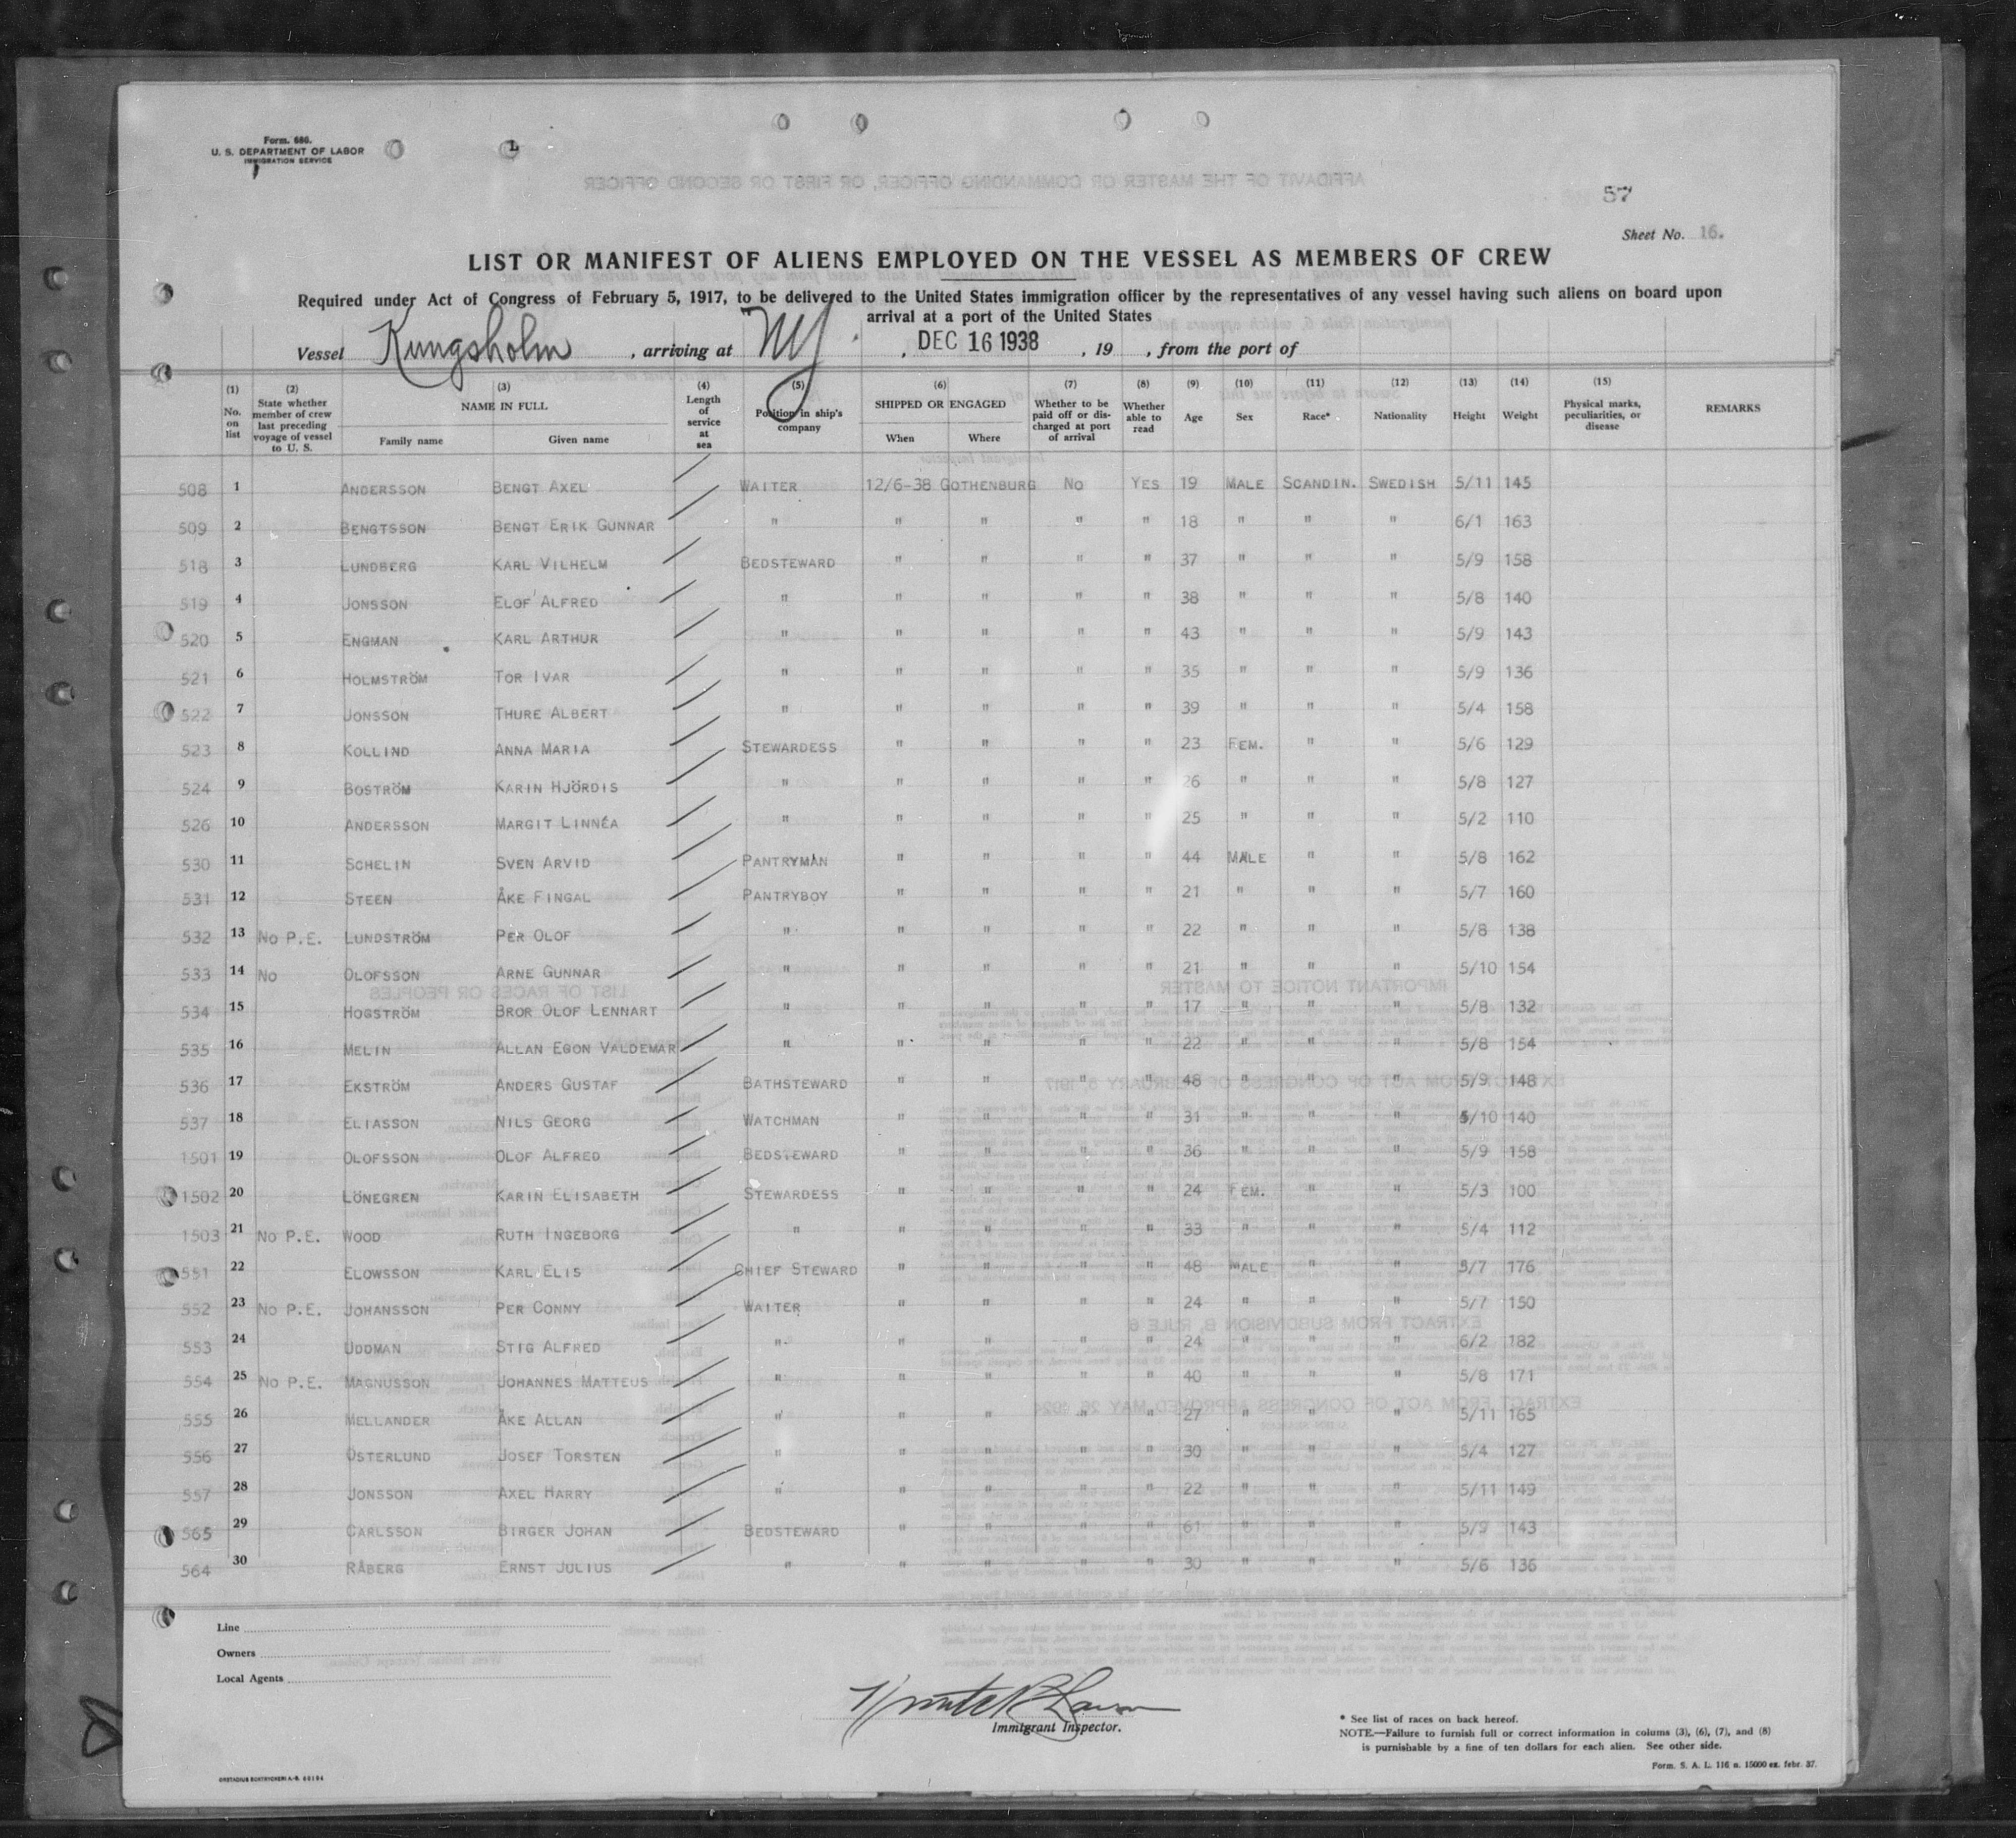 Form. 686.
U. S. DEPARTMENT OF LABOR
IMMIGRATION SERVICE
L
57
Sheet No. 16.
LIST OR MANIFEST OF ALIENS EMPLOYED ON THE VESSEL AS MEMBERS OF CREW
Required under Act of Congress of February 5, 1917, to be delivered to the United States immigration officer by the representatives of any vessel having such aliens on board upon
arrival at a port of the United States
Vessel Kungsholm, arriving at NY, DEC 16 1938, 19 , from the port of
(1) No. on list (2) State whether member of crew last preceding voyage of vessel to U. S. (3) NAME IN FULL Family name Given name (4) Length of service at sea (5) Position in ship's company (6) SHIPPED OR ENGAGED When Where (7) Whether to be paid off or discharged at port of arrival (8) Whether able to read (9) Age (10) Sex (11) Race* (12) Nationality (13) Height (14) Weight (15) Physical marks, peculiarities, or disease REMARKS
508 1 ANDERSSON BENGT AXEL WAITER 12/6-38 GOTHENBURG NO YES 19 MALE SCANDIN. SWEDISH 5/11 145
509 2 BENGTSSON BENGT ERIK GUNNAR " " " " " 18 " " " 6/1 163
518 3 LUNDBERG KARL VILHELM BEDSTEWARD " " " " 37 " " " 5/9 158
519 4 JONSSON ELOF ALFRED " " " " " 38 " " " 5/8 140
520 5 ENGMAN KARL ARTHUR " " " " " 43 " " " 5/9 143
521 6 HOLMSTRÖM TOR IVAR " " " " " 35 " " " 5/9 136
522 7 JONSSON THURE ALBERT " " " " " 39 " " " 5/4 158
523 8 KOLLIND ANNA MARIA STEWARDESS " " " " 23 FEM. " " 5/6 129
524 9 BOSTRÖM KARIN HJÖRDIS " " " " " 26 " " " 5/8 127
526 10 ANDERSSON MARGIT LINNÉA " " " " " 25 " " " 5/2 110
530 11 SCHELIN SVEN ARVID PANTRYMAN " " " " 44 MALE " " 5/8 162
531 12 STEEN ÅKE FINGAL PANTRYBOY " " " " 21 " " " 5/7 160
532 13 NO P.E. LUNDSTRÖM PER OLOF " " " " " 22 " " " 5/8 138
533 14 NO OLOFSSON ARNE GUNNAR " " " " " 21 " " " 5/10 154
534 15 HOGSTRÖM BROR OLOF LENNART " " " " " 17 " " " 5/8 132
535 16 MELIN ALLAN EGON VALDEMAR " " " " " 22 " " " 5/8 154
536 17 EKSTRÖM ANDERS GUSTAF BATHSTEWARD " " " " 48 " " " 5/9 148
537 18 ELIASSON NILS GEORG WATCHMAN " " " " 31 " " " 5/10 140
1501 19 OLOFSSON OLOF ALFRED BEDSTEWARD " " " " 36 " " " 5/9 158
1502 20 LÖNEGREN KARIN ELISABETH STEWARDESS " " " " 24 FEM. " " 5/3 100
1503 21 NO P.E. WOOD RUTH INGEBORG " " " " " 33 " " " 5/4 112
551 22 ELOWSSON KARL ELIS CHIEF STEWARD " " " " 48 MALE " " 5/7 176
552 23 NO P.E. JOHANSSON PER CONNY WAITER " " " " 24 " " " 5/7 150
553 24 UDDMAN STIG ALFRED " " " " " 24 " " " 6/2 182
554 25 NO P.E. MAGNUSSON JOHANNES MATTEUS " " " " " 40 " " " 5/8 171
555 26 MELLANDER ÅKE ALLAN " " " " " 27 " " " 5/11 165
556 27 ÖSTERLUND JOSEF TORSTEN " " " " " 30 " " " 5/4 127
557 28 JONSSON AXEL HARRY " " " " " 22 " " " 5/11 149
565 29 CARLSSON BIRGER JOHAN BEDSTEWARD " " " " 61 " " " 5/9 143
564 30 RÅBERG ERNST JULIUS " " " " " 30 " " " 5/6 136
Line
Owners
Local Agents
Immigrant Inspector.
* See list of races on back hereof.
NOTE.—Failure to furnish full or correct information in colums (3), (6), (7), and (8)
is purnishable by a fine of ten dollars for each alien. See other side.
Form. S. A. L. 116 n. 15000 ex. febr. 37.